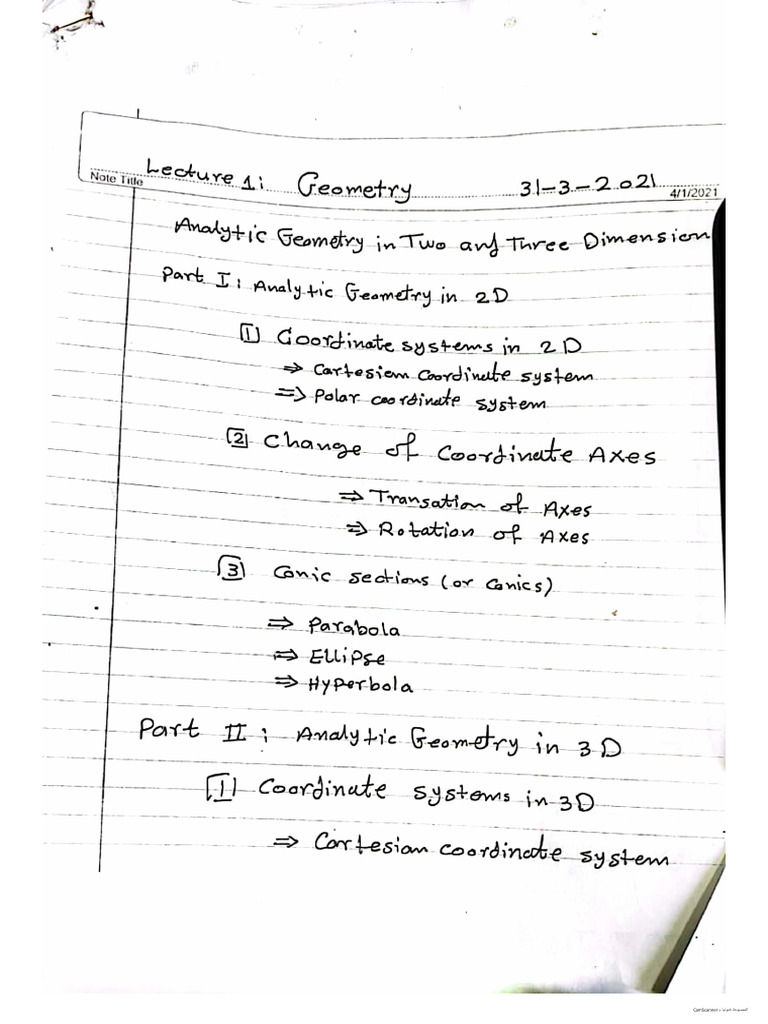 Lecture 1: Geometry 31-3-2021
Note Title 4/1/2021
Analytic Geometry in Two and Three Dimension
Part I: Analytic Geometry in 2D
1 Coordinate systems in 2D
⇒ Cartesian coordinate system
⇒ Polar coordinate system
2 Change of Coordinate Axes
⇒ Transation of Axes
⇒ Rotation of Axes
3 Conic sections (or Conics)
⇒ Parabola
⇒ Ellipse
⇒ Hyperbola
Part II: Analytic Geometry in 3D
1 Coordinate systems in 3D
⇒ Cartesian coordinate system